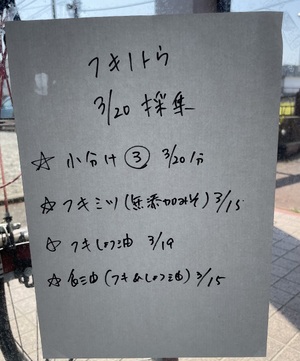 フキノトウ
3/20 採集
☆ 小分け ③ 3/20分
☆ フキミソ(無添加みそ) 3/15
☆ フキしょう油 3/19
☆ 油(フキ&しょう油) 3/15